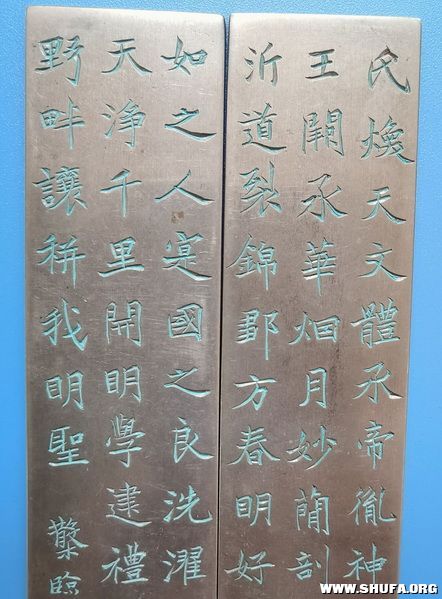 氏煥天文體承帝胤神
王闕承華烟月妙簡剖
沂道裂錦鄒方春明好
如之人寔國之良洗濯
天淨千里開明學建禮
野畔讓耕我明聖
檠臨
WWW.SHUFA.ORG